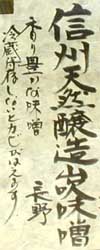 信州天然醸造山吹味噌
香り豊かな味噌
冷蔵保存しないとカビがはえます
長野